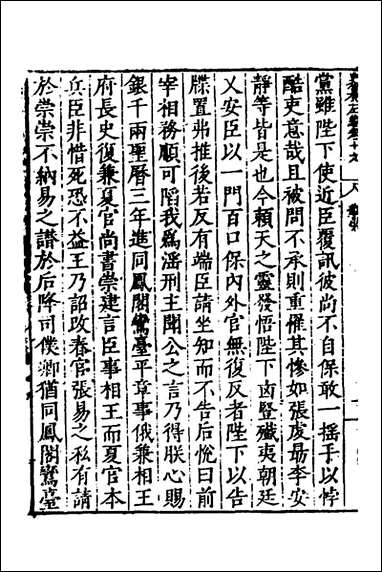 黨雖陛下使近臣覆訊彼尚不自保敢一搖手以悖
酷吏意哉且被問不承則重罹其慘如張虔勗李安
靜等皆是也今賴天之靈發悟陛下凶豎殱夷朝廷
乂安臣以一門百口保內外官無復反者陛下以告
牒置弗推後若反有端臣請坐知而不告后悅曰前
宰相務順可陷我爲滛刑主聞公之言乃得朕心賜
銀千兩聖曆三年進同鳳閣鸞臺平章事俄兼相王
府長史復兼夏官尚書崇建言臣事相王而夏官本
兵臣非惜死恐不益王乃詔改春官張易之私有請
於崇崇不納易之譖於后降司僕卿猶同鳳閣鸞臺